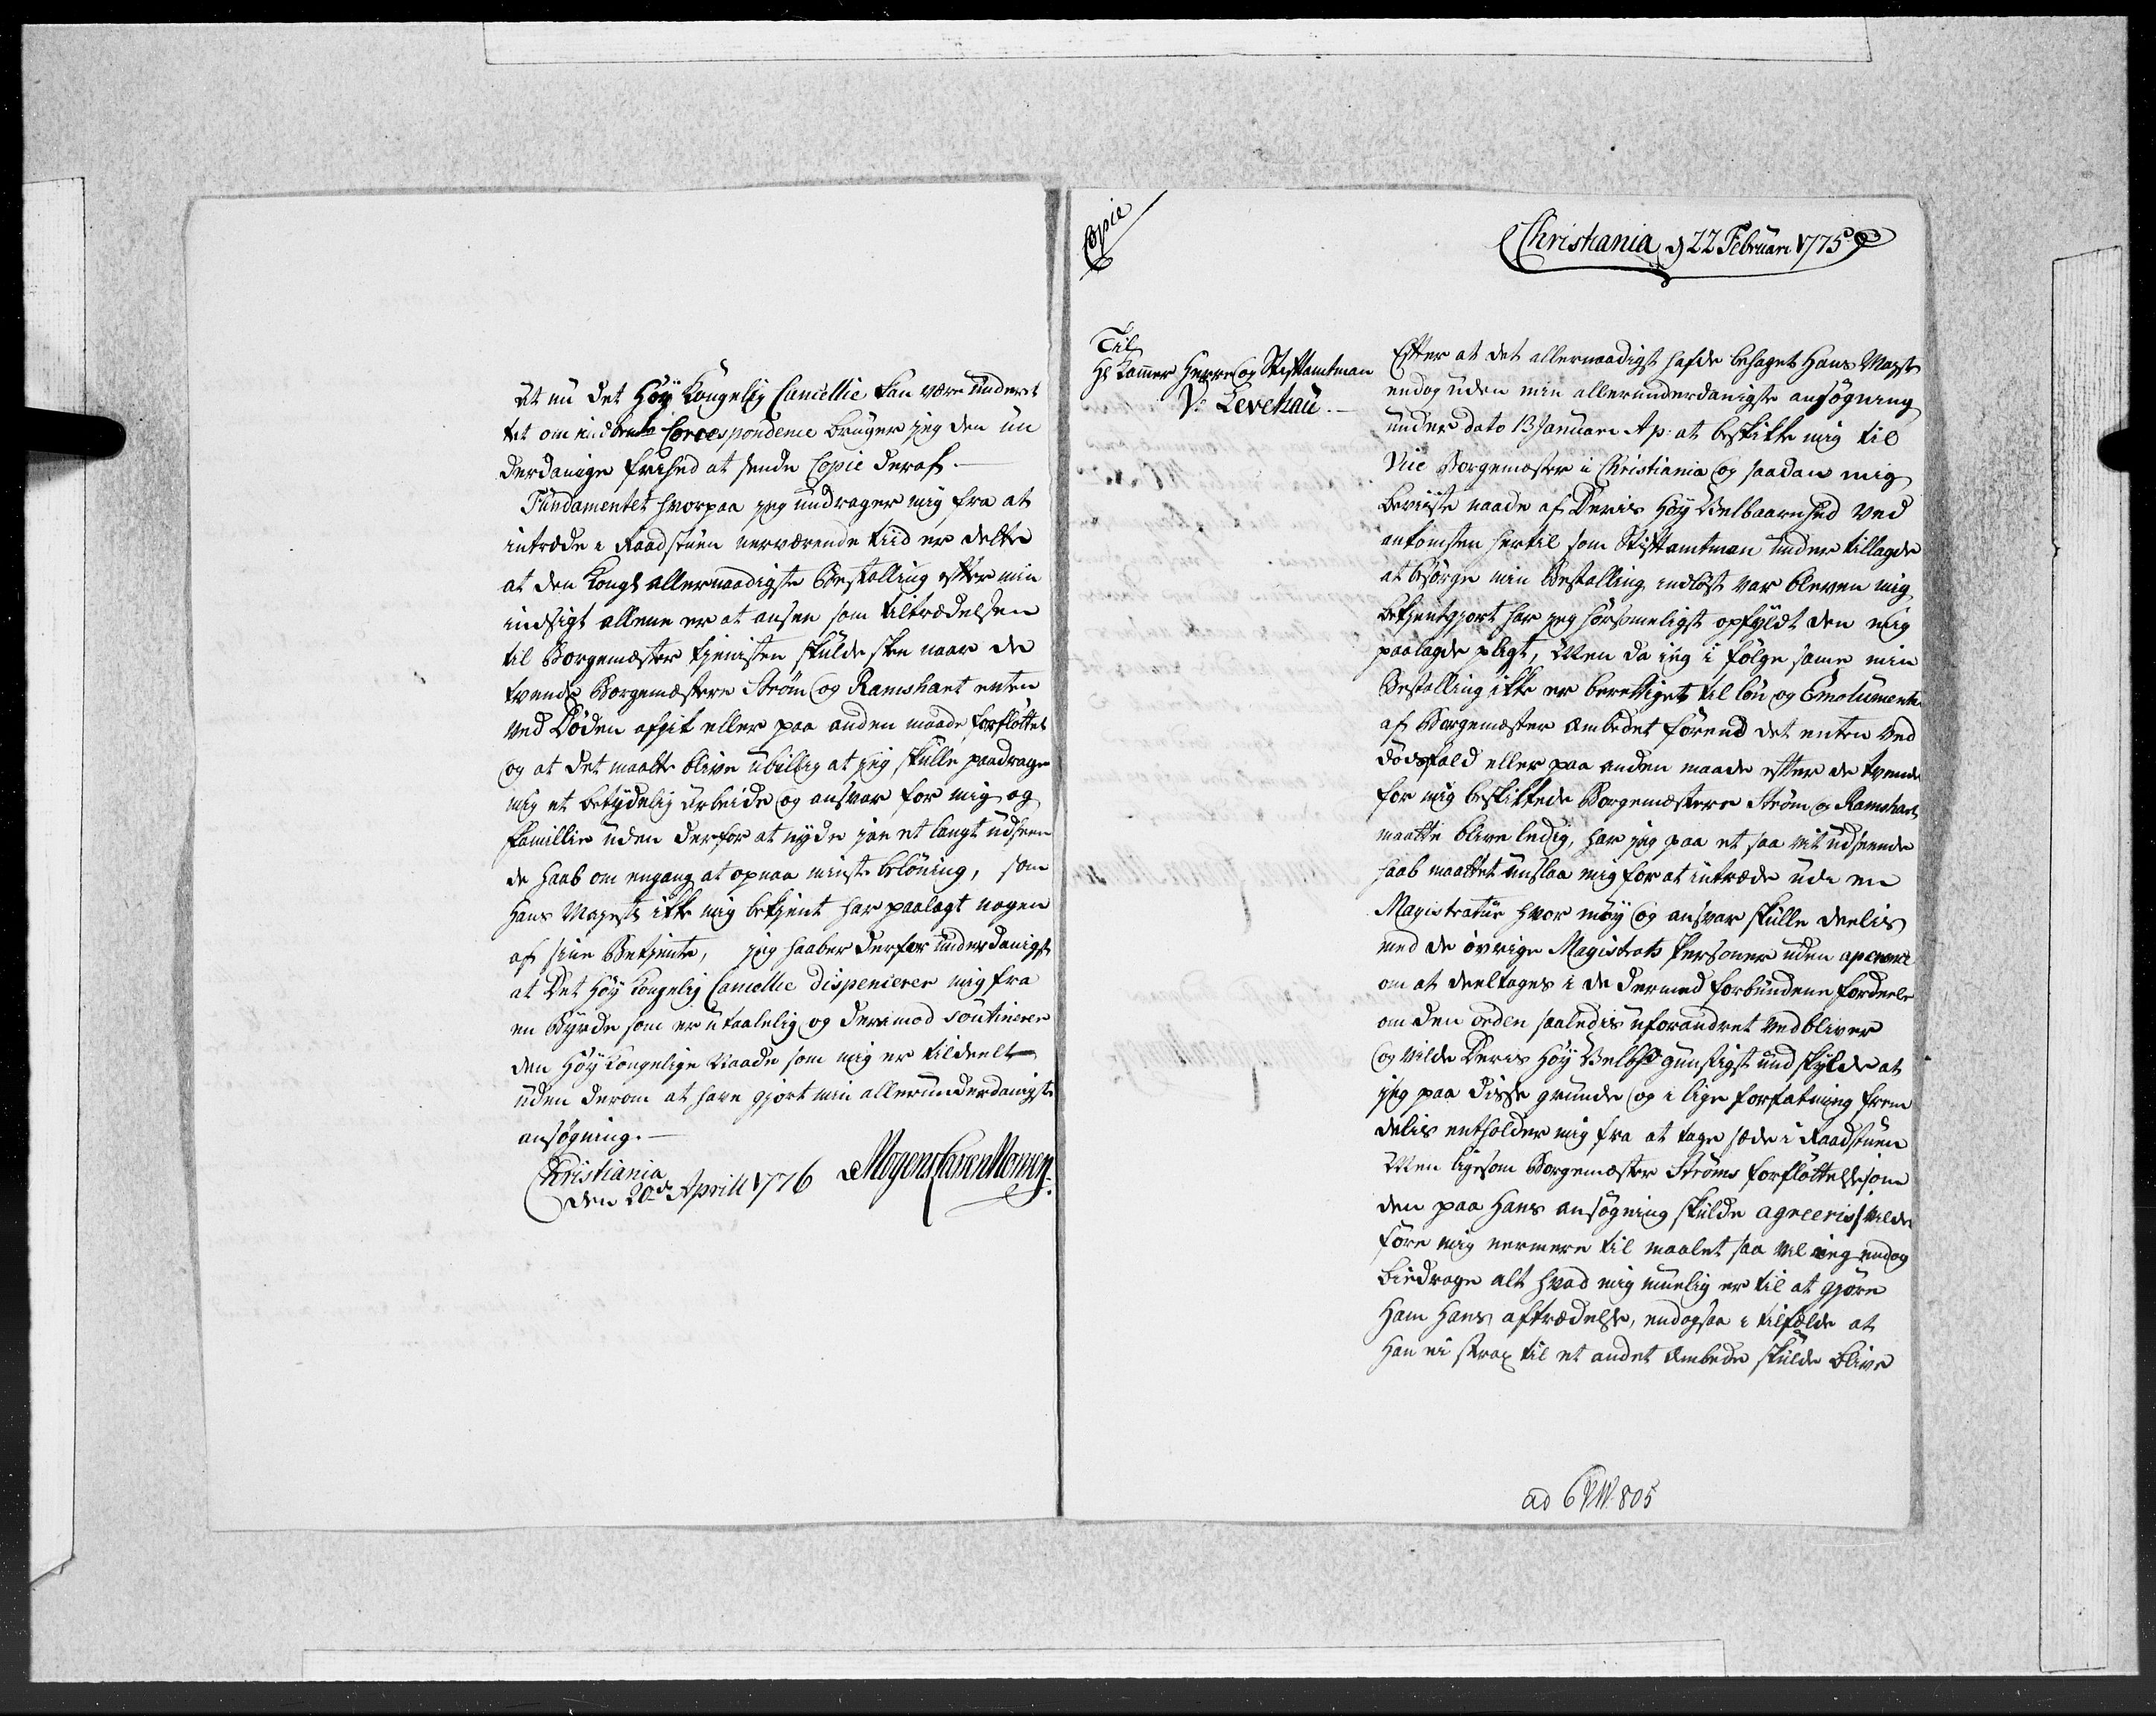 at nu det Høy Kongelig Cancellie kan være underret
tet om indbente Correspondence bruger jeg den un
derdanige frihed at sende Copie deraf.
Fundamentet hvorpaa jeg undrager mig fra at
intræde i Raadstuen nerværende tiid er dette
at den Kongl allernaadigste Bestalling efter min
indsigt allene er at ansee som tiltrædelsen
til Borgemæster tjenisten skulde skee naar de
tvende Borgemæstere Strøm og Ramshart enten
ved Døden afgik eller paa anden maade forflöttet
og at det maatte blive ubillig at jeg skulle paadrage
mig et betydelig arbeide og ansvar for mig og
familie uden derfor at nyde jae et langt udseen
de haab om engang at opnaa minste belöning, som
Hans Mayests ikke mig bekjent har paalagt nogen
af sine Betjente, jeg haaber derfor underdanigst
at Det Høy Kongelig Cancellie dispencerer mig fra
en Byrde som er utaalelig og derimod soutinerer
den Høy Kongelige Naade som mig er tildeelt
uden derom at have gjort min allerunderdanigste
ansøgning.
Christiania
den 20de Aprill 1776 Mogens Larsen Monsen
Copie
Christiania d 22 Februari 1775
Til
Hr Kammer Herre og Stiftamtman
V. Levetzau.
Efter at det allernaadigst hafde behaget Hans Mayst
endog uden min allerunderdanigste ansögning
under dato 13 Januari A p. at beskikke mig til
Vice Borgemæster i Christiania og saadan mig
beviiste naade af Deris Høy Velbaarenhed ved
ankomsten hertil som Stiftamtman under tillagde
at besörge min Bestalling indlöst var bleven mig
bekjentgjort har jeg hörsommeligst opfyldt den mig
paalagde pligt, Men da jeg i følge samme min
Bestalling ikke er berettiget til lön og Emolumenter
af Borgemæster Embedet förend det enten ved
dödsfald eller paa anden maade efter de tvende
for mig beskikkede Borgemæstere Ström og Ramshart
maatte blive ledig, har jeg paa et saa vit udseende
haab maattet undslaa mig for at intræde udi en
Magistratur hvor möy og ansvar skulle deelis
med de øvrige Magistrats Personer uden apparence
om at deeltages i de dermed forbundene fordeele
om den orden saaledis uforandret vedbliver
og vilde Deris Høy Velbhd gunstigst undskylde at
jeg paa disse grunde og i lige forfatning frem
delis entholder mig fra at tage sæde i Raadstuen
Men ligesom Borgemæster Ströms forflöttelse som
den paa hans ansøgning skulde agreeris vilde
føre mig nermere til maalet saa vil jeg endog
bidrage alt hvad mig muelig er til at gjöre
Ham hans aftrædelse, endogsaa i tilfælde at
Han ei strax til et andet Embede skulde blive